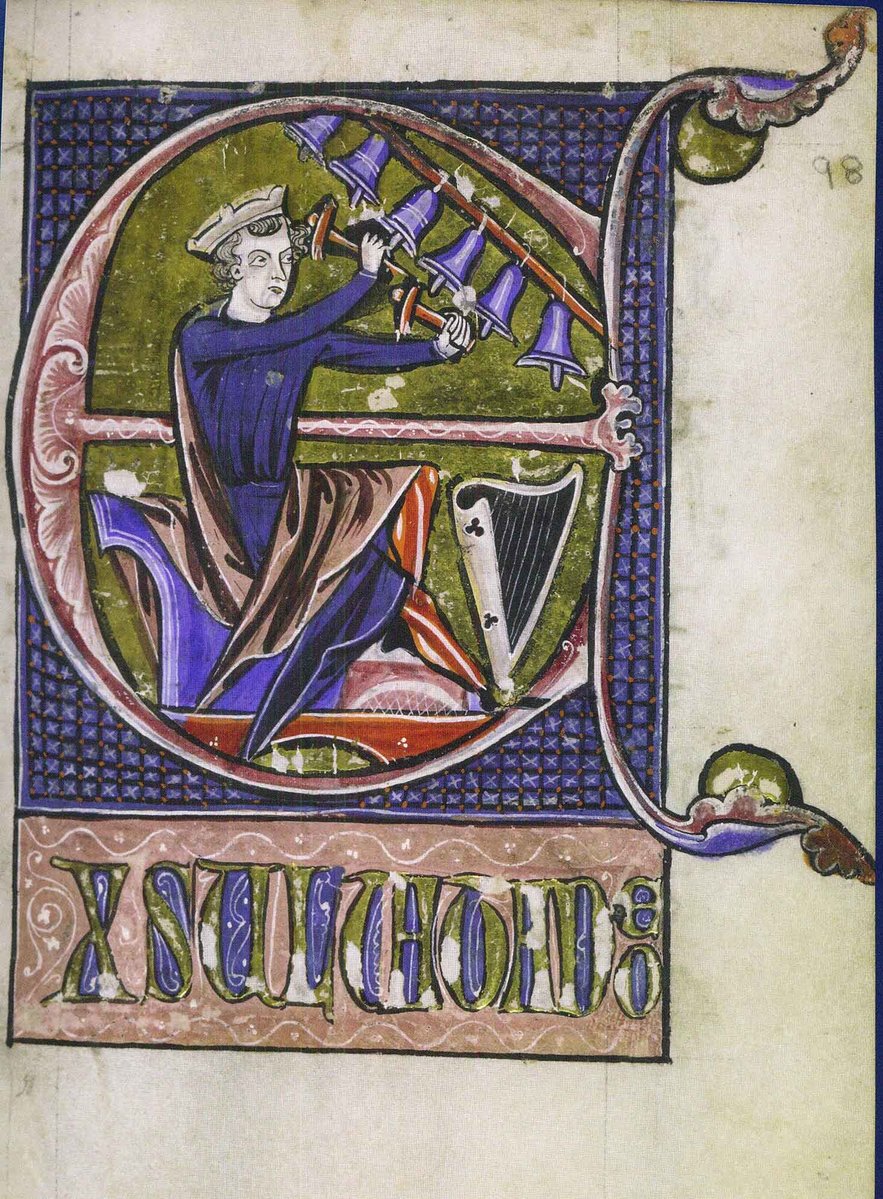 98
EXSULTATE DEO